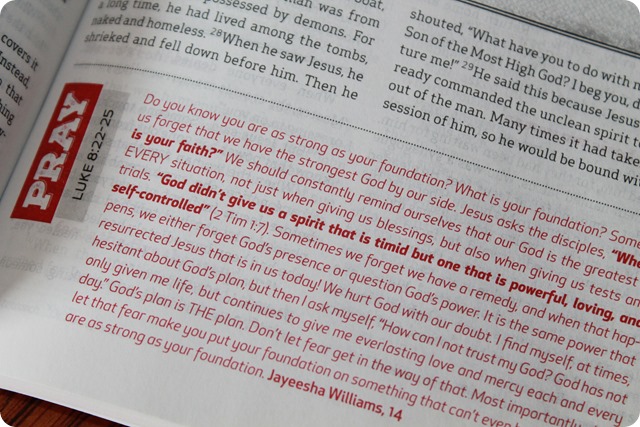 boat,
man was from
possessed by demons. For
a long time, he had lived among the tombs,
naked and homeless. 28When he saw Jesus, he
shrieked and fell down before him. Then he
shouted, "What have you to do with
Son of the Most High God? I beg you, d
ture me!" 29He said this because Jesus
ready commanded the unclean spirit t
out of the man. Many times it had take
session of him, so he would be bound wi
covers it
Instead,
that
thing
PRAY
LUKE 8:22-25
Do you know you are as strong as your foundation? What is your foundation? Som
us forget that we have the strongest God by our side. Jesus asks the disciples, "Whe
is your faith?" We should constantly remind ourselves that our God is the greatest
EVERY situation, not just when giving us blessings, but also when giving us tests an
trials. "God didn't give us a spirit that is timid but one that is powerful, loving, and
self-controlled" (2 Tim 1:7). Sometimes we forget we have a remedy, and when that hap-
pens, we either forget God's presence or question God's power. It is the same power that
resurrected Jesus that is in us today! We hurt God with our doubt. I find myself, at times,
hesitant about God's plan, but then I ask myself, "How can I not trust my God? God has not
only given me life, but continues to give me everlasting love and mercy each and every
day." God's plan is THE plan. Don't let fear get in the way of that. Most importantly, d
let that fear make you put your foundation on something that can't even
are as strong as your foundation. Jayeesha Williams, 14